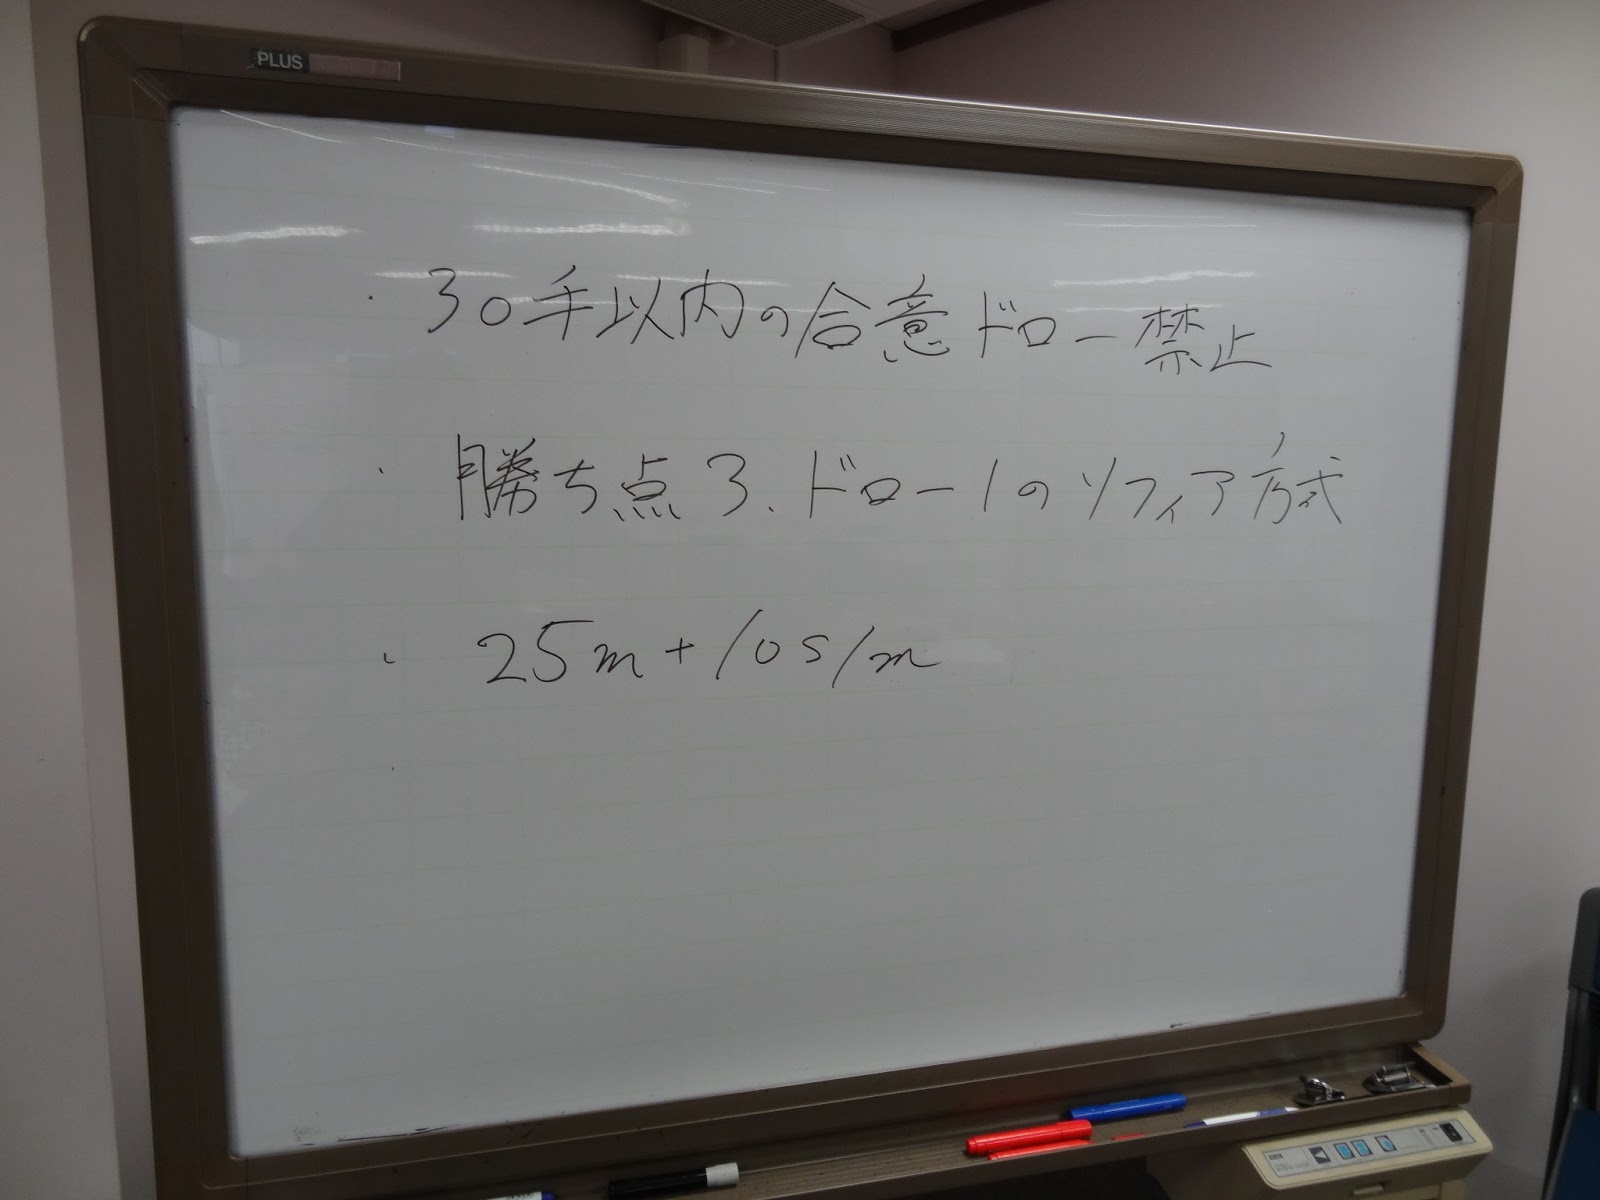 PLUS
・30手以内の合意ドロー禁止
・勝ち点3、ドロー1のソフィア方式
・25m+10s/m